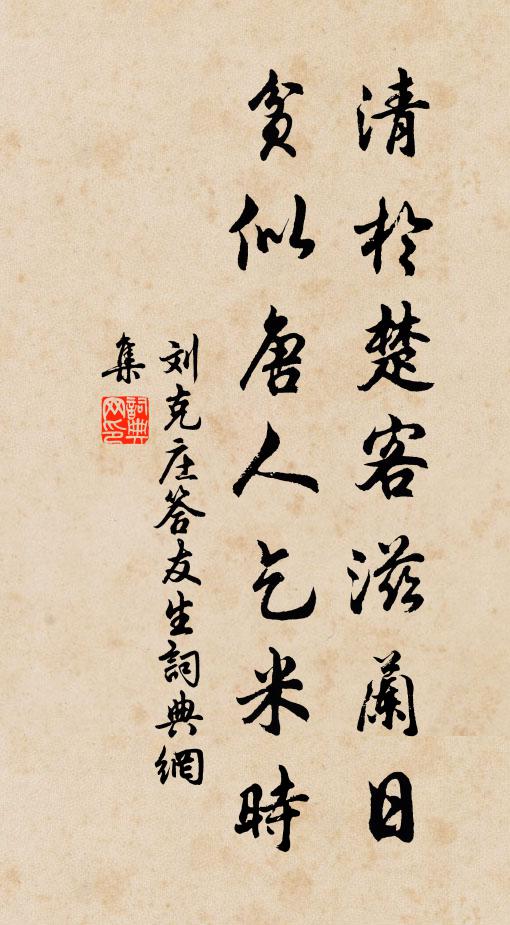 清於楚客滋蘭日
貧似唐人乞米時
刘克庄答友生詞典網
集
詞典網印